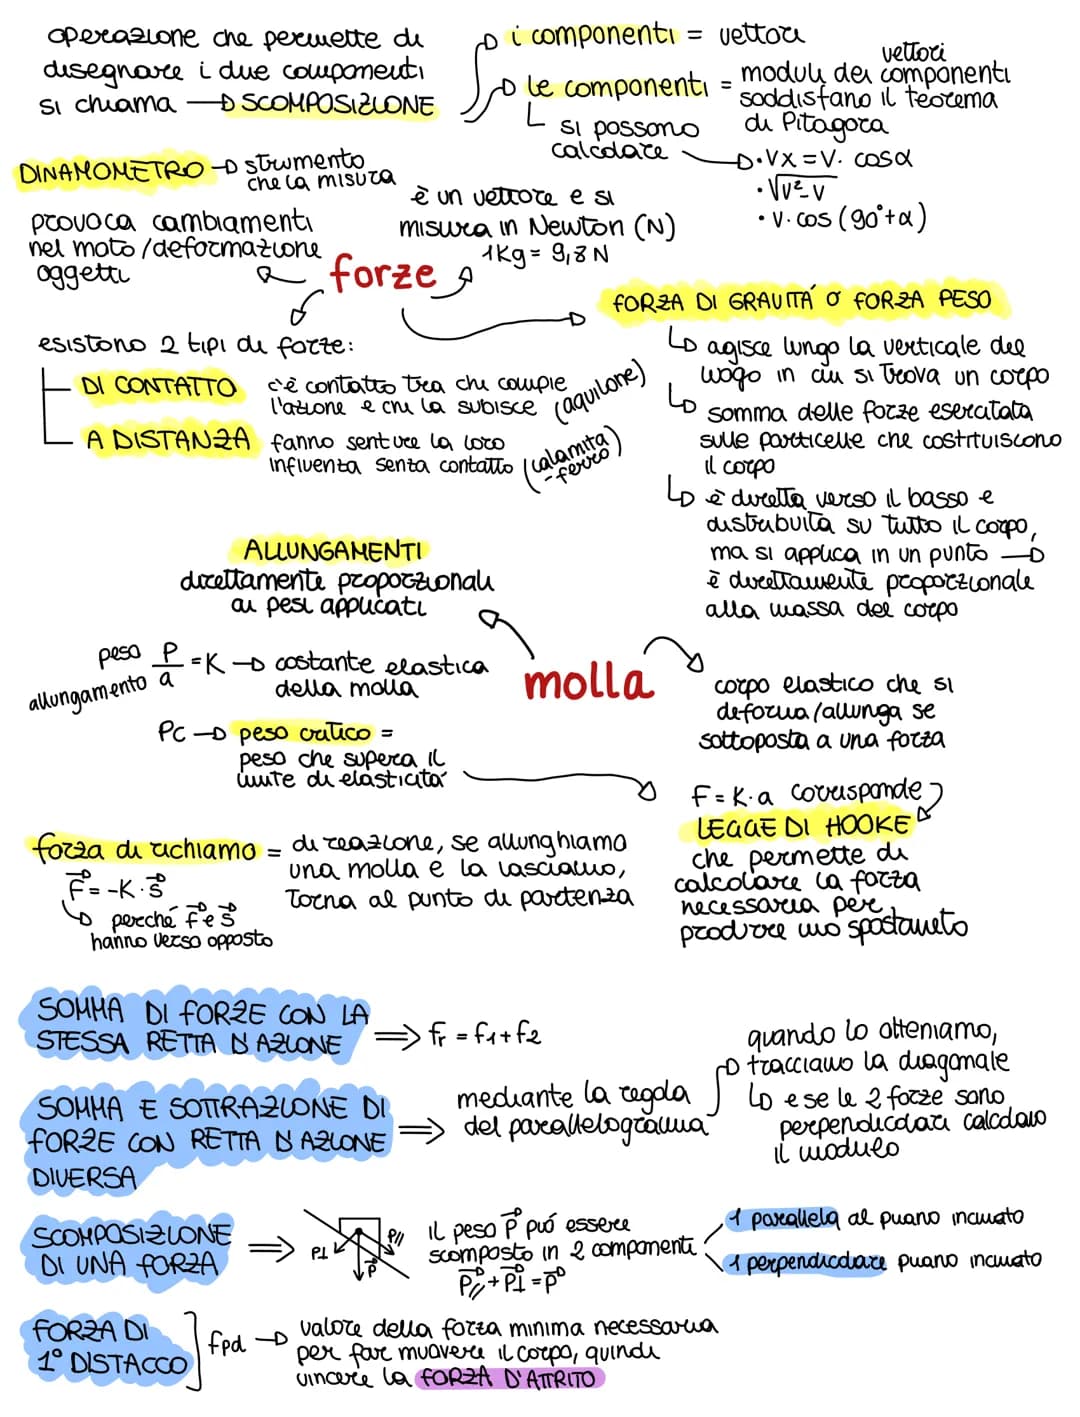 operazione che permette di
disegnare i due componenti
si chiama → SCOMPOSIZIONE
i componenti = vettori
le componenti = moduli dei componenti
vettori
soddisfano il teorema
di Pitagora
si possono
calcolare
• Vx = V. cosα
• √V²-V
• V. cos (90°+α)
DINAMOMETRO → strumento
che la misura
è un vettore e si
misura in Newton (N)
1Kg = 9,8 N
provoca cambiamenti
nel moto/deformazione
oggetti
forze
esistono 2 tipi di forze:
DI CONTATTO c'è contatto tra chi compie
l'azione e chi la subisce (aquilone)
A DISTANZA fanno sentire la loro
influenza senza contatto (calamita
-ferro)
FORZA DI GRAVITÁ O FORZA PESO
agisce lungo la verticale del
luogo in cui si trova un corpo
somma delle forze esercitata
sulle particelle che costituiscono
il corpo
è diretta verso il basso e
distribuita su tutto il corpo,
ma si applica in un punto →
è direttamente proporzionale
alla massa del corpo
ALLUNGAMENTI
direttamente proporzionali
ai pesi applicati
peso P
allungamento a = K → costante elastica
della molla
Pc → peso critico =
peso che supera il
limite di elasticitá
molla
corpo elastico che si
deforma/allunga se
sottoposta a una forza
F = K·a corrisponde
LEGGE DI HOOKE
che permette di
calcolare la forza
necessaria per
produrre uno spostaneto
forza di richiamo = di reazione, se allunghiamo
una molla e la lasciamo,
torna al punto di partenza
F⃗ = -K·s⃗
perché F⃗ e s⃗
hanno verso opposto
SOMMA DI FORZE CON LA
STESSA RETTA D'AZIONE ⇒ fr = f1+f2
SOMMA E SOTTRAZIONE DI
FORZE CON RETTA D'AZIONE
DIVERSA
⇒ mediante la regola
del parallelogramma
quando lo otteniamo,
tracciamo la diagonale
e se le 2 forze sono
perpendicolari calcolano
il modulo
SCOMPOSIZIONE
DI UNA FORZA ⇒
P⊥
P//
P⃗
il peso P⃗ puó essere
scomposto in 2 componenti
P⃗// + P⃗⊥ = P⃗
1 parallela al piano inclinato
1 perpendicolare piano inclinato
FORZA DI
1° DISTACCO
fpd → valore della forza minima necessaria
per far muovere il corpo, quindi
vincere la FORZA D'ATTRITO